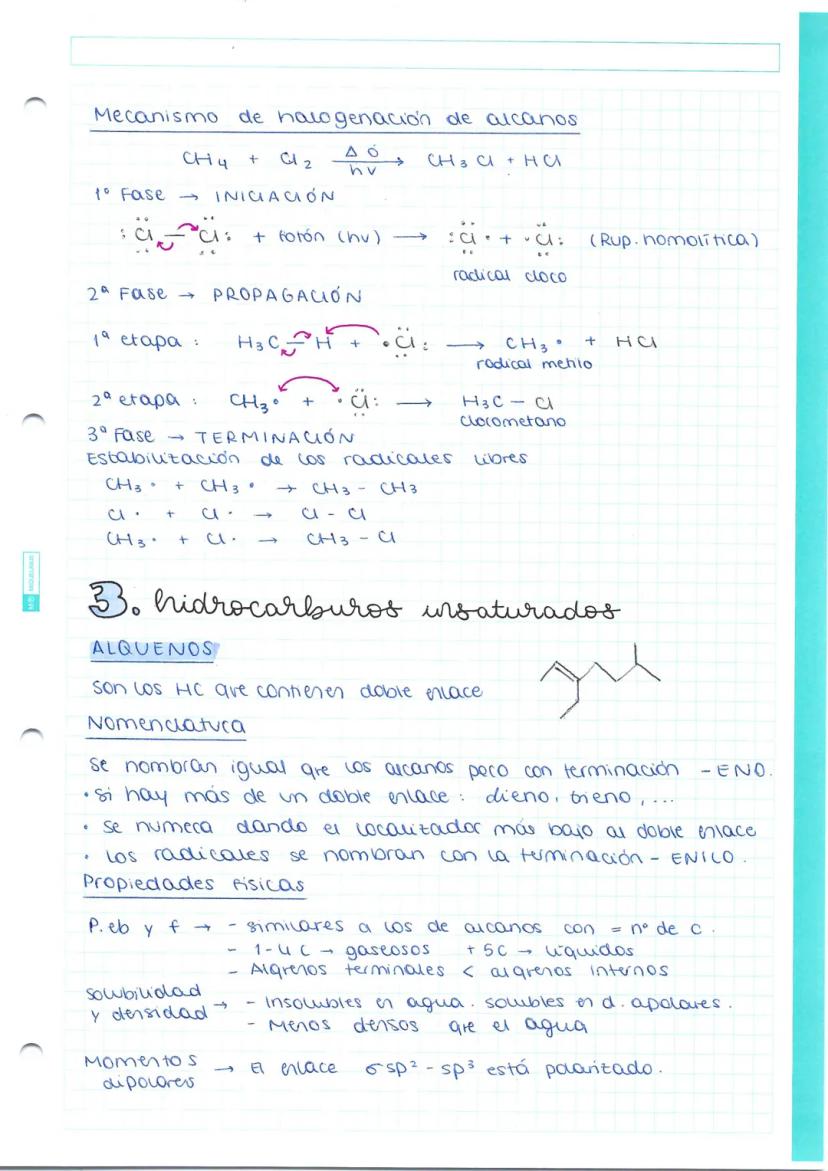 Mecanismo de halogenación de alcanos
CH4 + Cl2 Δ ó hv → CH3Cl + HCl
1º Fase → INICIACIÓN
:Cl — Cl: + fotón (hv) → :Cl· + ·Cl: (Rup. homolítica)
radical cloro
2ª Fase → PROPAGACIÓN
1ª etapa : H3C — H + ·Cl: → CH3· + HCl
radical metilo
2ª etapa : CH3· + ·Cl: → H3C — Cl
Clorometano
3ª Fase → TERMINACIÓN
Estabilización de los radicales libres
CH3· + CH3· → CH3 - CH3
Cl· + Cl· → Cl - Cl
CH3· + Cl· → CH3 - Cl
3. hidrocarburos insaturados
ALQUENOS
Son los HC que contienen doble enlace
Nomenclatura
Se nombran igual que los alcanos pero con terminación -ENO.
• si hay más de un doble enlace : dieno, trieno, ...
• se numera dando el localizador más bajo al doble enlace
• los radicales se nombran con la terminación - ENILO.
Propiedades físicas
P. eb y f → - similares a los de alcanos con = nº de C.
- 1-4 C → gaseosos +5C → líquidos
- Alqenos terminales < alqenos internos
Solubilidad y densidad → - Insolubles en agua. solubles en d. apolares.
- Menos densos que el agua
Momentos dipolares → El enlace σ sp2 - sp3 está polarizado.